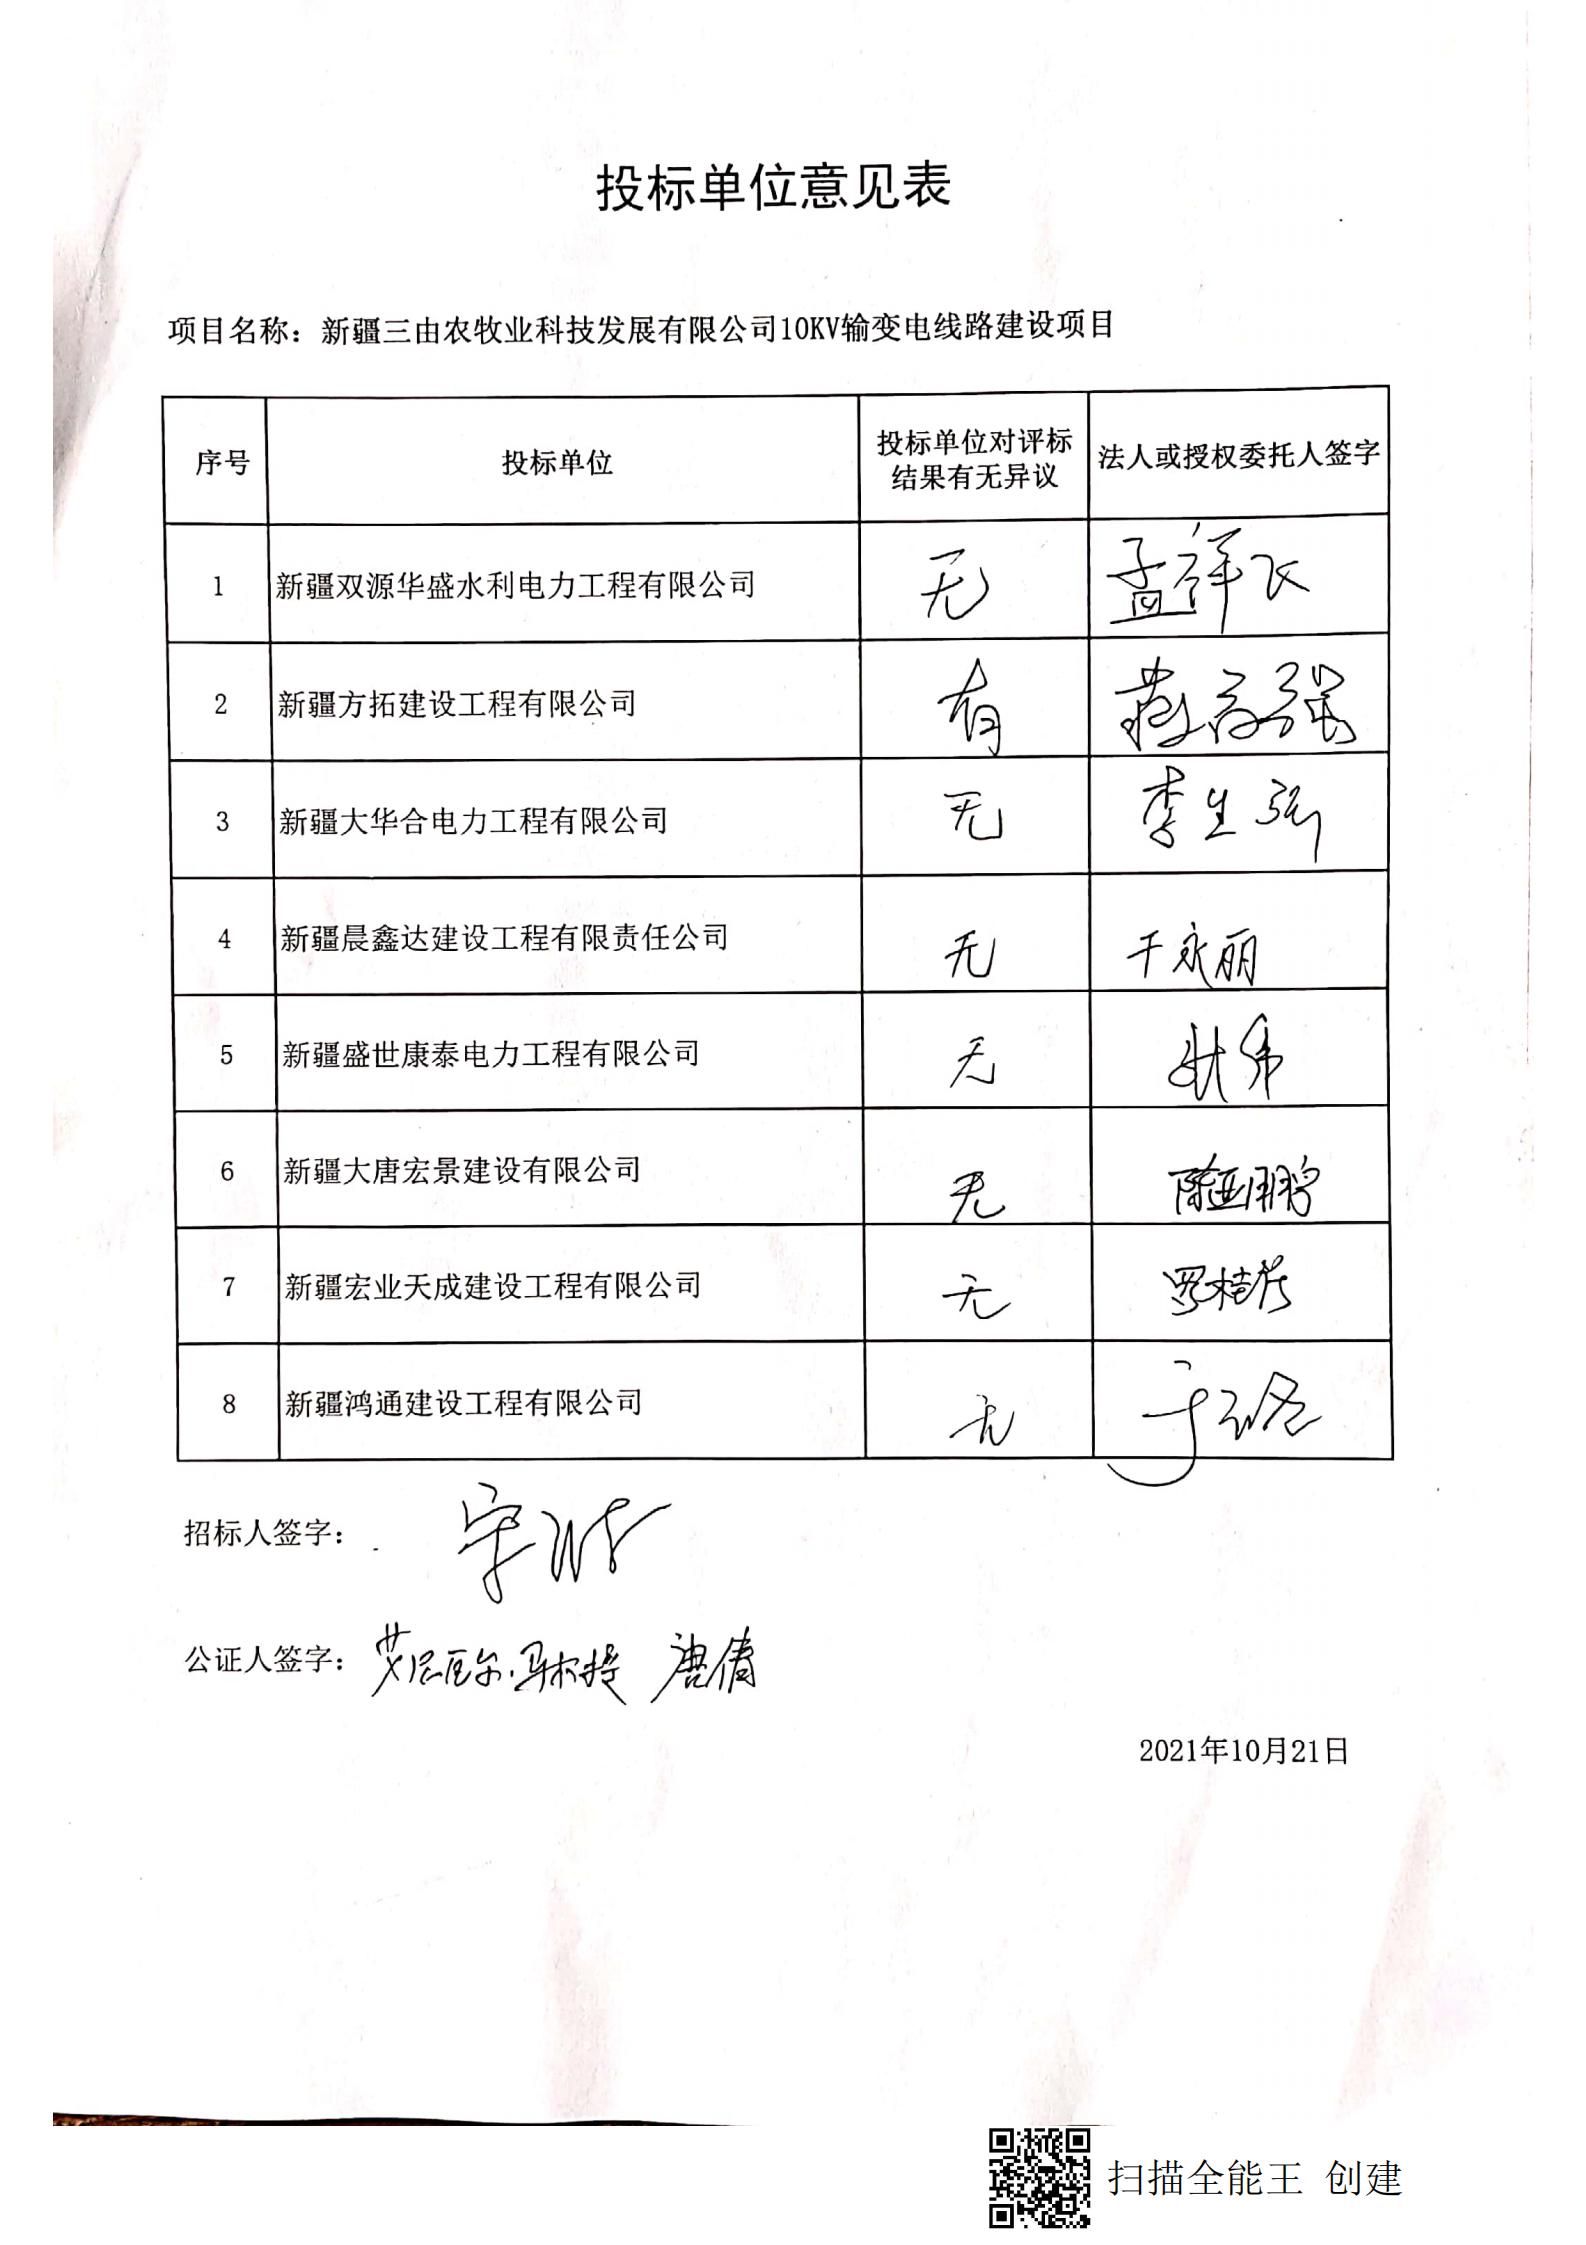 投标单位意见表
项目名称：新疆三由农牧业科技发展有限公司10KV输变电线路建设项目
序号 投标单位 投标单位对评标结果有无异议 法人或授权委托人签字
1 新疆双源华盛水利电力工程有限公司 无 孟祥飞
2 新疆方拓建设工程有限公司 有
3 新疆大华合电力工程有限公司 无 李生
4 新疆晨鑫达建设工程有限责任公司 无 于永丽
5 新疆盛世康泰电力工程有限公司 无
6 新疆大唐宏景建设有限公司 无 陈亚鹏
7 新疆宏业天成建设工程有限公司 无 罗桂
8 新疆鸿通建设工程有限公司 无
招标人签字：
公证人签字： 唐倩
2021年10月21日
扫描全能王 创建